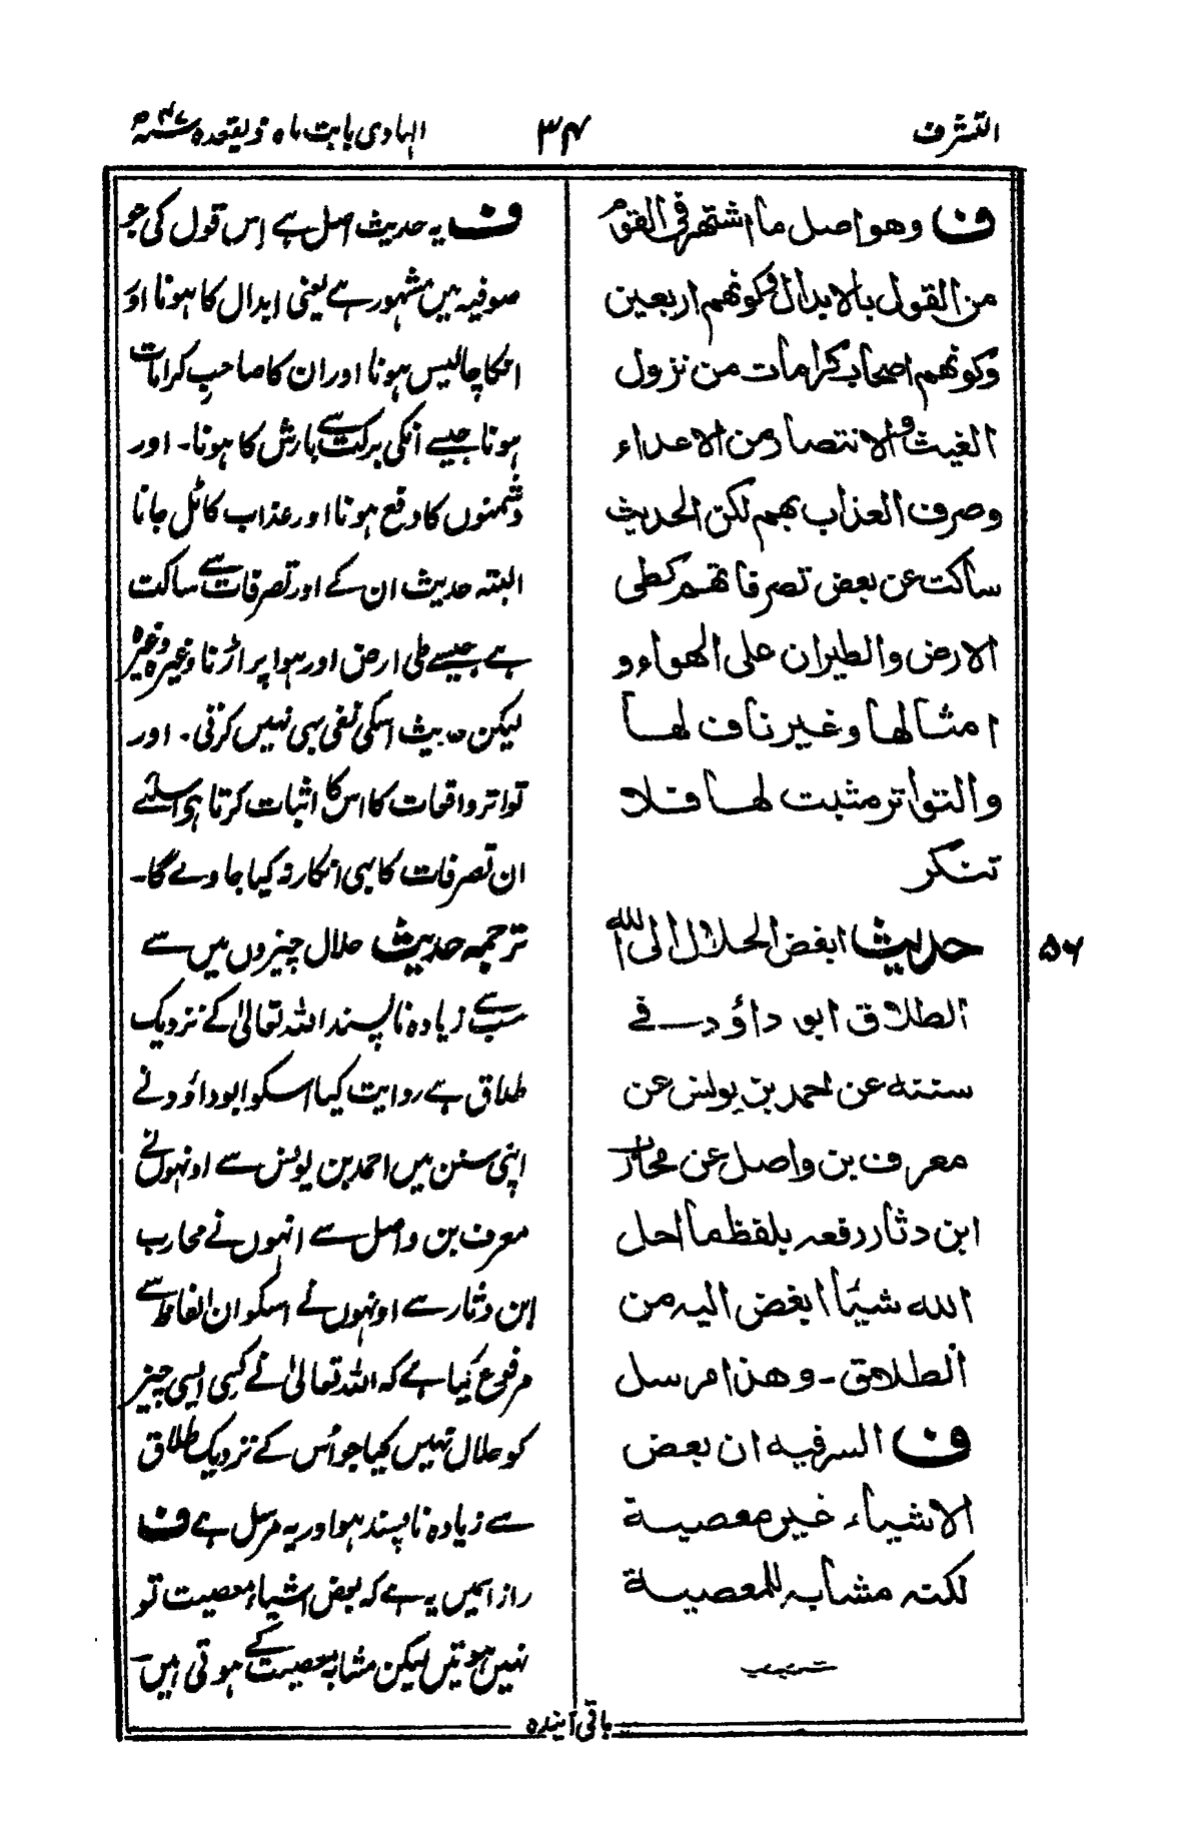 التشرف
۳۴
الہادی بابت ماہ ذیقعدہ ۴۷ھ
ف وهو اصل ما اشتهر فی القوم
من القول بالابدال وکونهم اربعین
وکونهم اصحاب کرامات من نزول
الغیث والانتصار من الاعداء
وصرف العذاب بهم لکن الحدیث
ساکت عن بعض تصرفاتهم کطی
الارض والطیران علی الهواء و
امثالها وغیر ناف لها
والتواتر مثبت لها فلا
تنکر
حدیث ابغض الحلال الی الله
الطلاق ابو داؤد فے
سننه عن احمد بن یونس عن
معرف بن واصل عن محارب
ابن دثار رفعه بلفظ ما احل
الله شیئا ابغض الیه من
الطلاق ۔ وهذا مرسل
ف السر فیه ان بعض
الاشیاء غیر معصیة
لکنه مشابه للمعصیة
۵۶
ف یہ حدیث اصل ہے اِس قول کی جو
صوفیہ میں مشہور ہے یعنی ابدال کا ہونا اور
انکا چالیس ہونا اور ان کا صاحبِ کرامات
ہونا جیسے انکی برکت سے بارش کا ہونا۔ اور
دشمنوں کا دفع ہونا اور عذاب کا ٹل جانا
البتہ حدیث ان کے اور تصرفات سے ساکت
ہے جیسے طی ارض اور ہوا پر اڑنا وغیرہ وغیرہ
لیکن حدیث اسکی نفی بہی نہیں کرتی ۔ اور
تواتر واقعات کا اس کا اثبات کرتا ہی اسلئے
ان تصرفات کا بہی انکار نہ کیا جاوے گا۔
ترجمہ حدیث حلال چیزوں میں سے
سب سے زیادہ ناپسند اللہ تعالیٰ کے نزدیک
طلاق ہے روایت کیا اسکو ابوداؤد نے
اپنی سنن میں احمد بن یونس سے اونہوں نے
معرف بن واصل سے انہوں نے محارب
ابن دثار سے اونہوں نے اسکو ان الفاظ سے
مرفوع کیا ہے کہ اللہ تعالیٰ نے کسی ایسی چیز
کو حلال نہیں کیا جو اُس کے نزدیک طلاق
سے زیادہ ناپسند ہو اور یہ مرسل ہے ف
راز اسمیں یہ ہے کہ بعض اشیاء معصیت تو
نہیں ہوتیں لیکن مشابہ معصیت کے ہوتی ہیں
باقی آیندہ